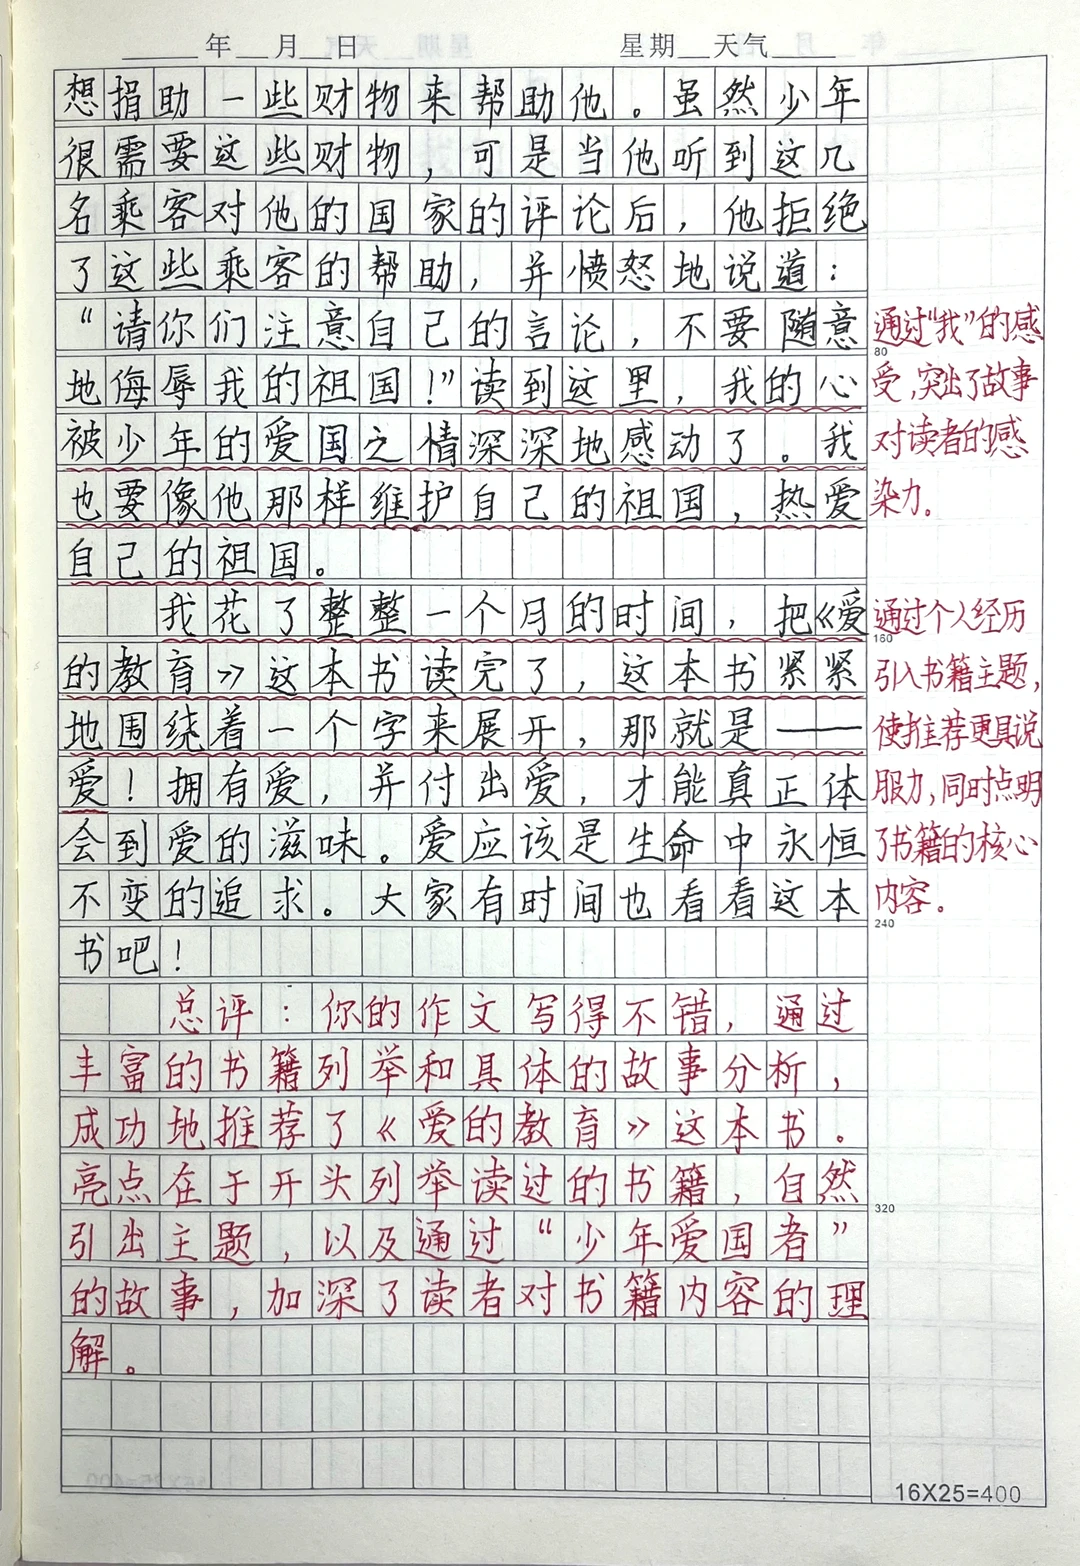 年 月 日 星期 天气
想捐助一些财物来帮助他。虽然少年
很需要这些财物，可是当他听到这几
名乘客对他的国家的评论后，他拒绝
了这些乘客的帮助，并愤怒地说道：
“请你们注意自己的言论，不要随意
地侮辱我的祖国！”读到这里，我的心
被少年的爱国之情深深地感动了。我
也要像他那样维护自己的祖国，热爱
自己的祖国。
我花了整整一个月的时间，把《爱
的教育》这本书读完了，这本书紧紧
地围绕着一个字来展开，那就是——
爱！拥有爱，并付出爱，才能真正体
会到爱的滋味。爱应该是生命中永恒
不变的追求。大家有时间也看看这本
书吧！
总评：你的作文写得不错，通过
丰富的书籍列举和具体的故事分析，
成功地推荐了《爱的教育》这本书。
亮点在于开头列举读过的书籍，自然
引出主题，以及通过“少年爱国者”
的故事，加深了读者对书籍内容的理
解。
通过“我”的感
80
受，突出了故事
对读者的感
染力。
通过个人经历
160
引入书籍主题，
使推荐更具说
服力，同时点明
了书籍的核心
内容。
240
320
16X25=400